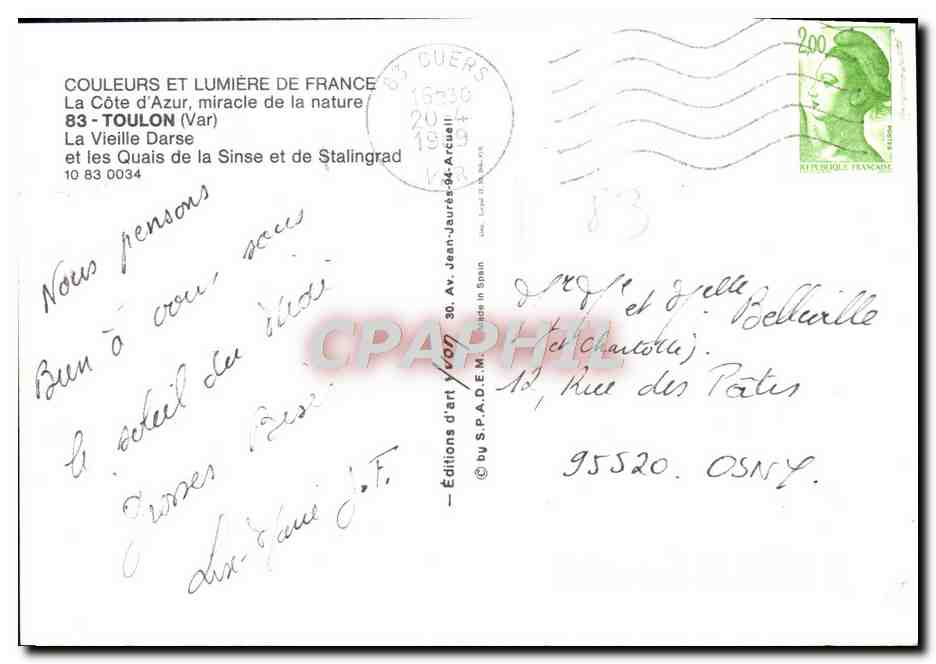 COULEURS ET LUMIÈRE DE FRANCE
La Côte d'Azur, miracle de la nature
83 - TOULON (Var)
La Vieille Darse
et les Quais de la Sinse et de Stalingrad
10 83 0034
83 CUERS
16 30
20 - 4
19 9
VAR
2,00
POSTES
REPUBLIQUE FRANÇAISE
83
Nous pensons
Bien à vous sous
le soleil du Midi
Grosses Bises
Marie J.F.
— Éditions d'art Yvon, 30. Av. Jean-Jaurès-94-Arcueil
© by S.P.A.D.E.M. Made in Spain
Mr Me et Melle Belleville
12, Rue des Pâtis
95520. OSNY.
CPAPHIL